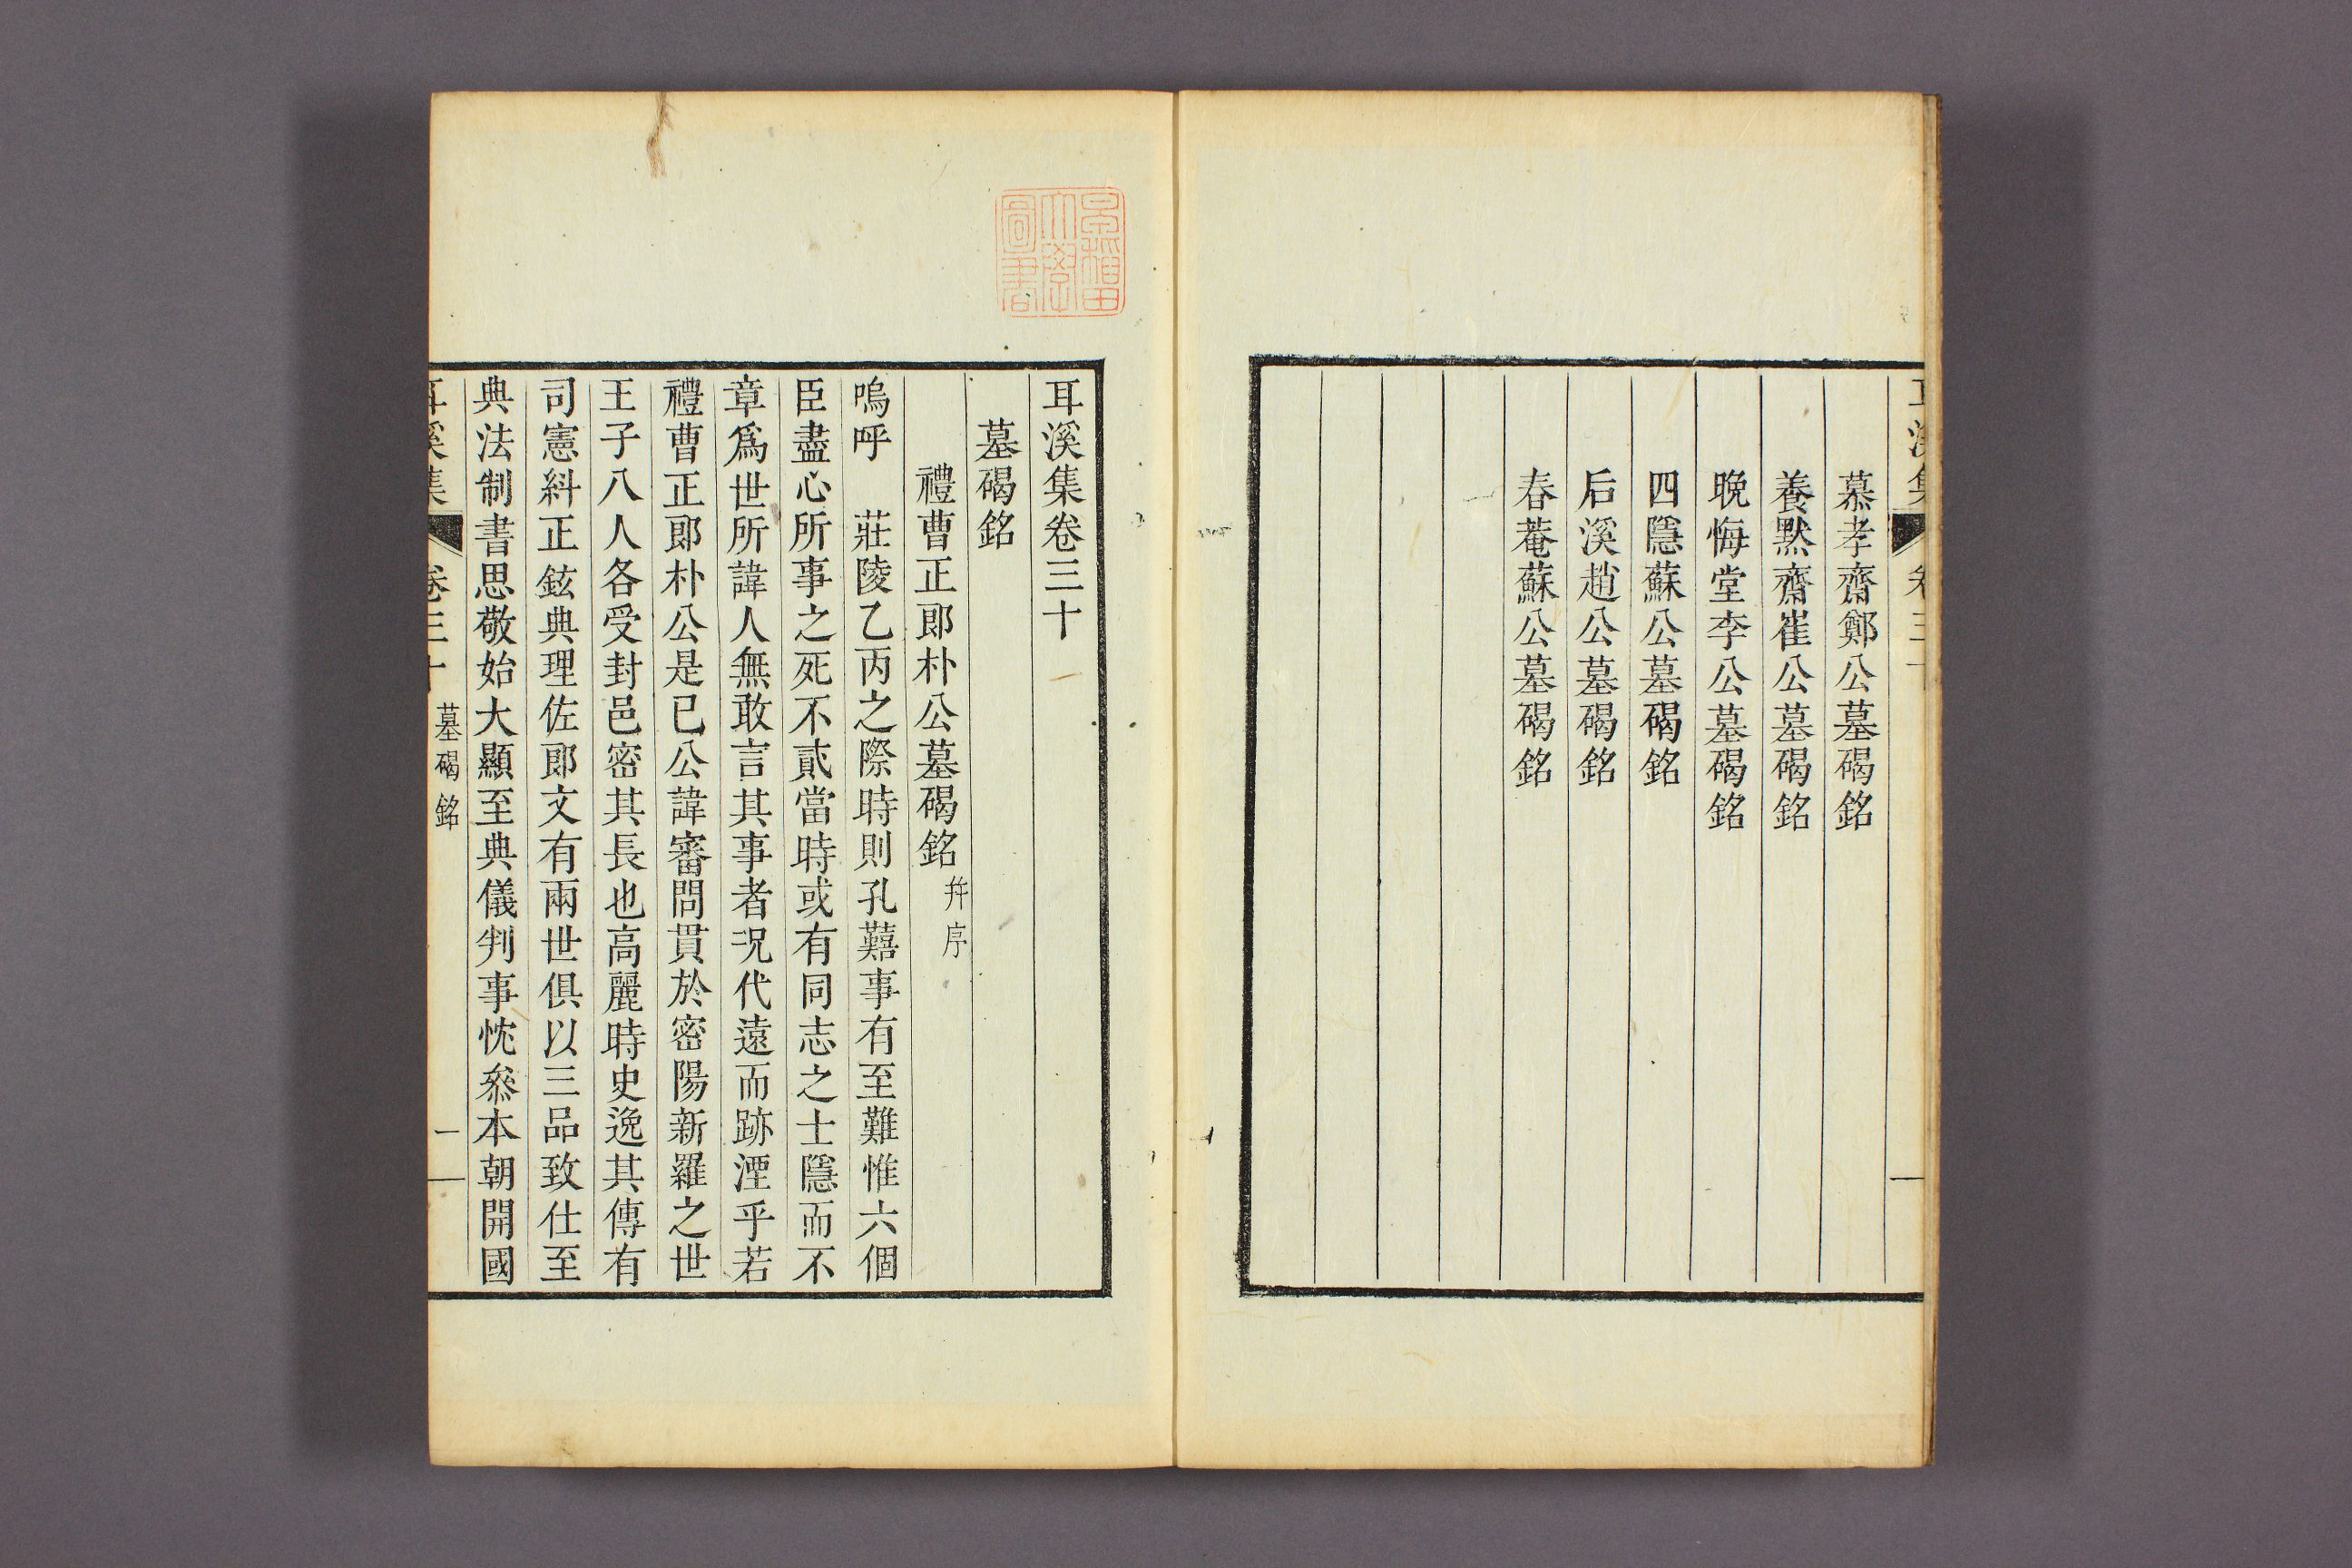 慕孝齋鄭公墓碣銘
養默齋崔公墓碣銘
晩悔堂李公墓碣銘
四隱蘇公墓碣銘
后溪趙公墓碣銘
春菴蘇公墓碣銘
早稲田
大學
圖書
耳溪集卷三十
墓碣銘
禮曹正郞朴公墓碣銘 幷序
嗚呼 莊陵乙丙之際時則孔囏事有至難惟六個
臣盡心所事之死不貳當時或有同志之士隱而不
章爲世所諱人無敢言其事者况代遠而跡湮乎若
禮曹正郞朴公是已公諱審問貫於密陽新羅之世
王子八人各受封邑密其長也高麗時史逸其傳有
司憲糾正鉉典理佐郞文有兩世俱以三品致仕至
典法制書思敬始大顯至典儀判事忱叅本朝開國
耳溪集 卷三十 墓碣銘 一